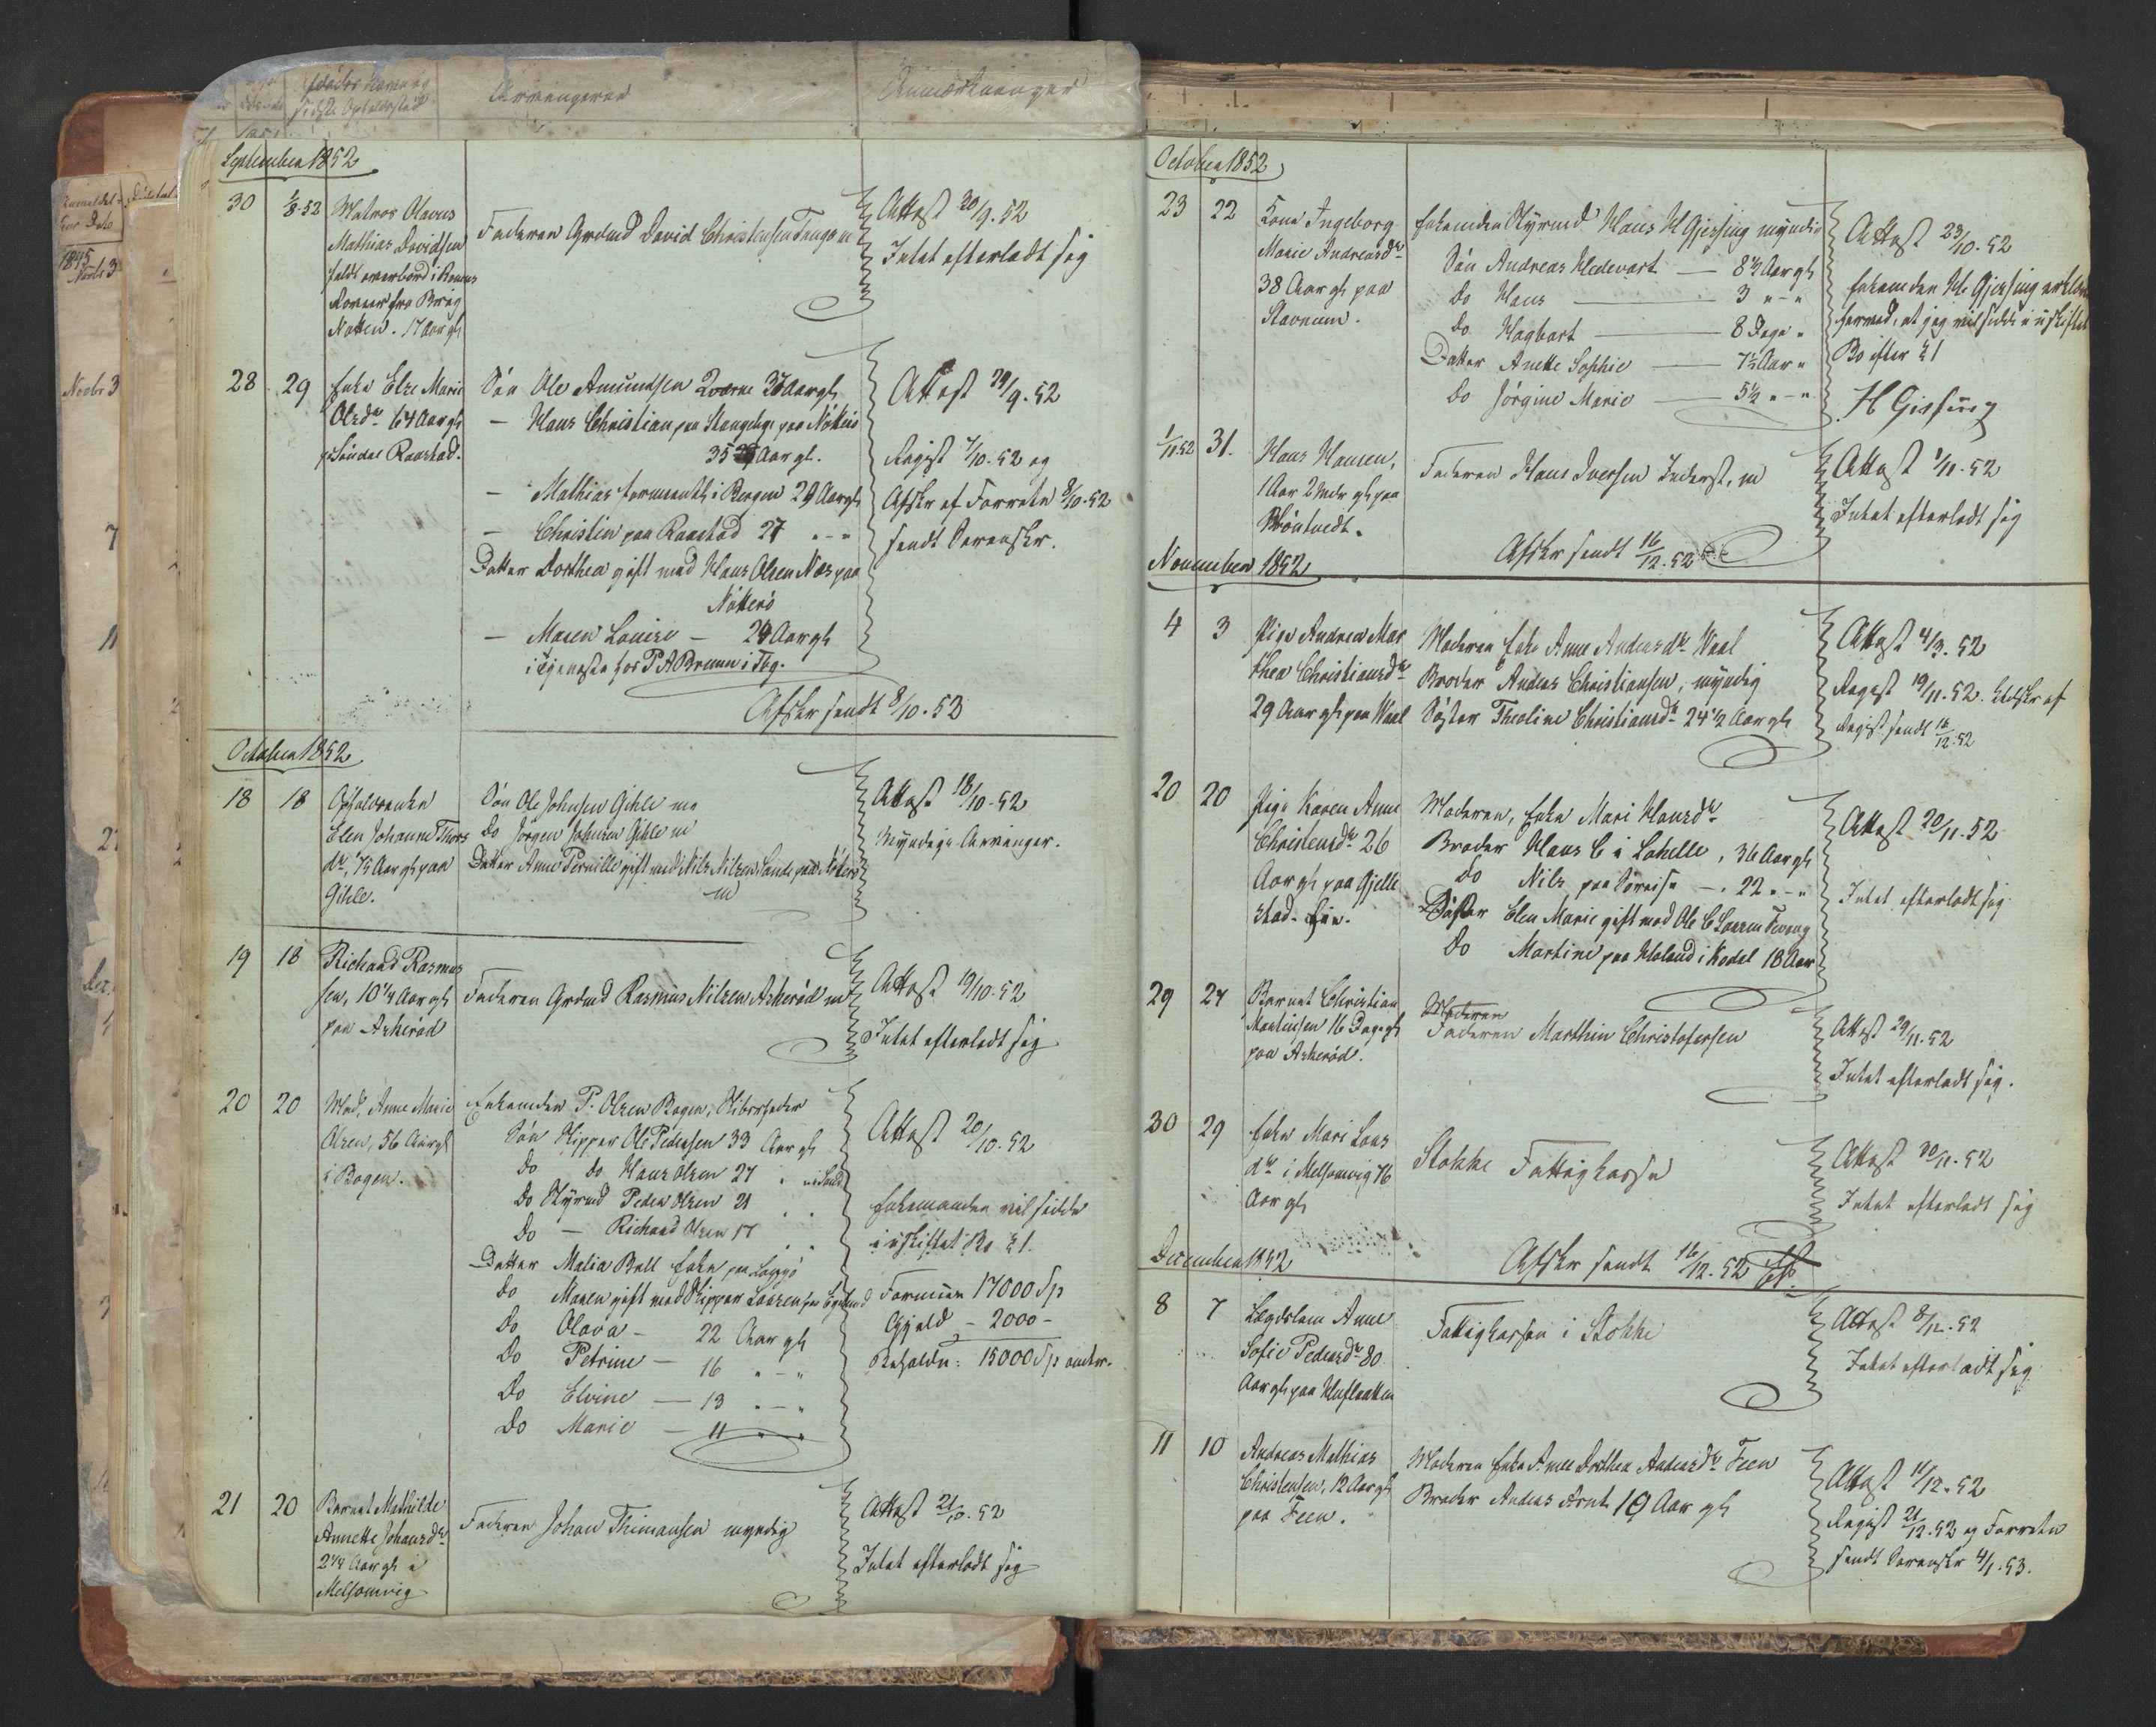 Afdødes Navn og
sidste Opholdssted
Arvingerne
Anmærkninger
September 1852
30 1/8-52 Matros Olavus
Mathias Davidsen
faldt overbord i
fra Brig
Notten. 17 Aar gl
Faderen Grdmd David Christensen m
Attest 30/9. 52
Intet efterladt sig
28 29 Enke Else Marie
Olsdr 64 Aar gl
p Søndre Raastad.
Søn Ole Amundsen 37 Aar gl
— Hans Christian paa paa Nøtterø
35 Aar gl.
— Mathias i Bergen 29 Aar gl
— Christen paa Raastad 27 " – "
Datter Dorthea gift med Hans Olsen Næs paa
Nøtterø
— Maren Louise — 24 Aar gl
i Tjeneste hos P A Bruun i Tbg.
Attest 29/9. 52
Regist 7/10. 52 og
Afskr af Forretn 8/10-52
sendt Sorenskr.
Afskr sendt 8/10. 52
October 1852
18 18
Elen Johanne Thors
dr, 75 Aar gl paa
Gihle.
Søn Ole Johnsen Gihle m
Do Jørgen Johnsen Gihle m
Datter Anne Pernille gift med Nils Nilsen Sande paa Nøtterø
m
Attest 18/10-52
Myndige Arvinger.
19 18 Richard Rasmus
sen, 10 1/4 Aar gl
paa Askerød
Faderen Grdmd Rasmus Nilsen Askerød m
Attest 19/10. 52
Intet efterladt sig
20 20 Mad. Anne Marie
Olsen, 56 Aar gl
i Bogen.
Enkemden P. Olsen Bogen, Skibsrheder
Søn Skipper Ole Pedersen 33 Aar gl
Do do Hans Olsen 27 "
Do Styrmd Peder Olsen 21 " "
Do — Richard Olsen 17 " "
Datter Malia Bull Enke paa
Do Maren gift med Skipper Larsen paa
Do Olava — 22 Aar gl
Do Petrine — 16 " – "
Do Elvine — 13 " – "
Do Marie — 11 " "
Attest 20/10. 52
Enkemanden vil sidde
i uskiftet Bo
Formue 17000 Sp
Gjæld – 2000 –
Beholdn: 15000 Sp
21 20 Barnet Mathilde
Annette Johansdr
2 1/4 Aar gl i
Melsomvig
Faderen Johan Thimansen myndig
Attest 21/10. 52
Intet efterladt sig
October 1852
23 22 Kone Ingeborg
Marie Andreasdr
38 Aar gl paa
Stavnum.
Enkemden Styrmd Hans H Gjessing myndig
Søn Andreas Hedevart — 8 1/2 Aar gl
Do Hans — 3 " – "
Do Hagbart — 8 Dage "
Datter Anette Sophie — 7 1/2 Aar "
Do Jørgine Marie — 5 1/2 " – "
Attest 23/10. 52
Enkemden H. Gjessing erklær
herved, at jeg vil sidde i uskiftet
Bo efter
H Gissing
1/11.52 31. Hans Hansen,
1 Aar 2 Mdr gl paa
Brøntvedt.
Faderen Hans Iversen Inderst, m
Attest 1/11. 52
Intet efterladt sig
Afskr sendt 16/12. 52
November 1852
4 3 Pige Andrea Mar
thea Christiansdr
29 Aar gl paa Waal
Moderen Enke Anne Andersdr Waal
Broder Andreas Christiansen, myndig
Søster Theoline Christiansdr 24 1/2 Aar gl
Attest 4/3. 52
Regist 19/11. 52. Udskr af
Regist. sendt 16/12. 52
20 20 Pige Karen Anne
Christensdr 26
Aar gl paa Gjelle
stad
Moderen, Enke Mari Hansdr
Broder Hans C i Lahelle, 36 Aar gl
Do Nils paa —. 22 " – "
Søster Elen Marie gift med Ole C Larsen
Do Martine paa Holand i Kodal 18 Aar
Attest 20/11. 52
Intet efterladt sig
29 27 Barnet Christian
Martinsen 16 Dage gl
paa Askerød.
Moderen
Faderen Marthin Christofersen
Attest 29/11. 52
Intet efterladt sig.
30 29 Enke Mari Lars
dr i Melsomvig 76
Aar gl
Stokke Fattigkasse
Attest 30/11. 52
Intet efterladt sig
Afskr sendt 16/12. 52
December 1852
8 7 Lægdslem Anne
Sofie Pedersdr 80
Aar gl paa
Fattigkassen i Stokke
Attest 8/12. 52
Intet efterladt sig
11 10 Andreas Mathias
Christensen, 12 Aar gl
paa Feen.
Moderen Enke Anne Dorthea Andersdr Feen
Broder Andreas Arnt 19 Aar gl
Attest 11/12. 52
Regist 21/12. 52 og Forretn
sendt Sorenskr 4/1. 53.